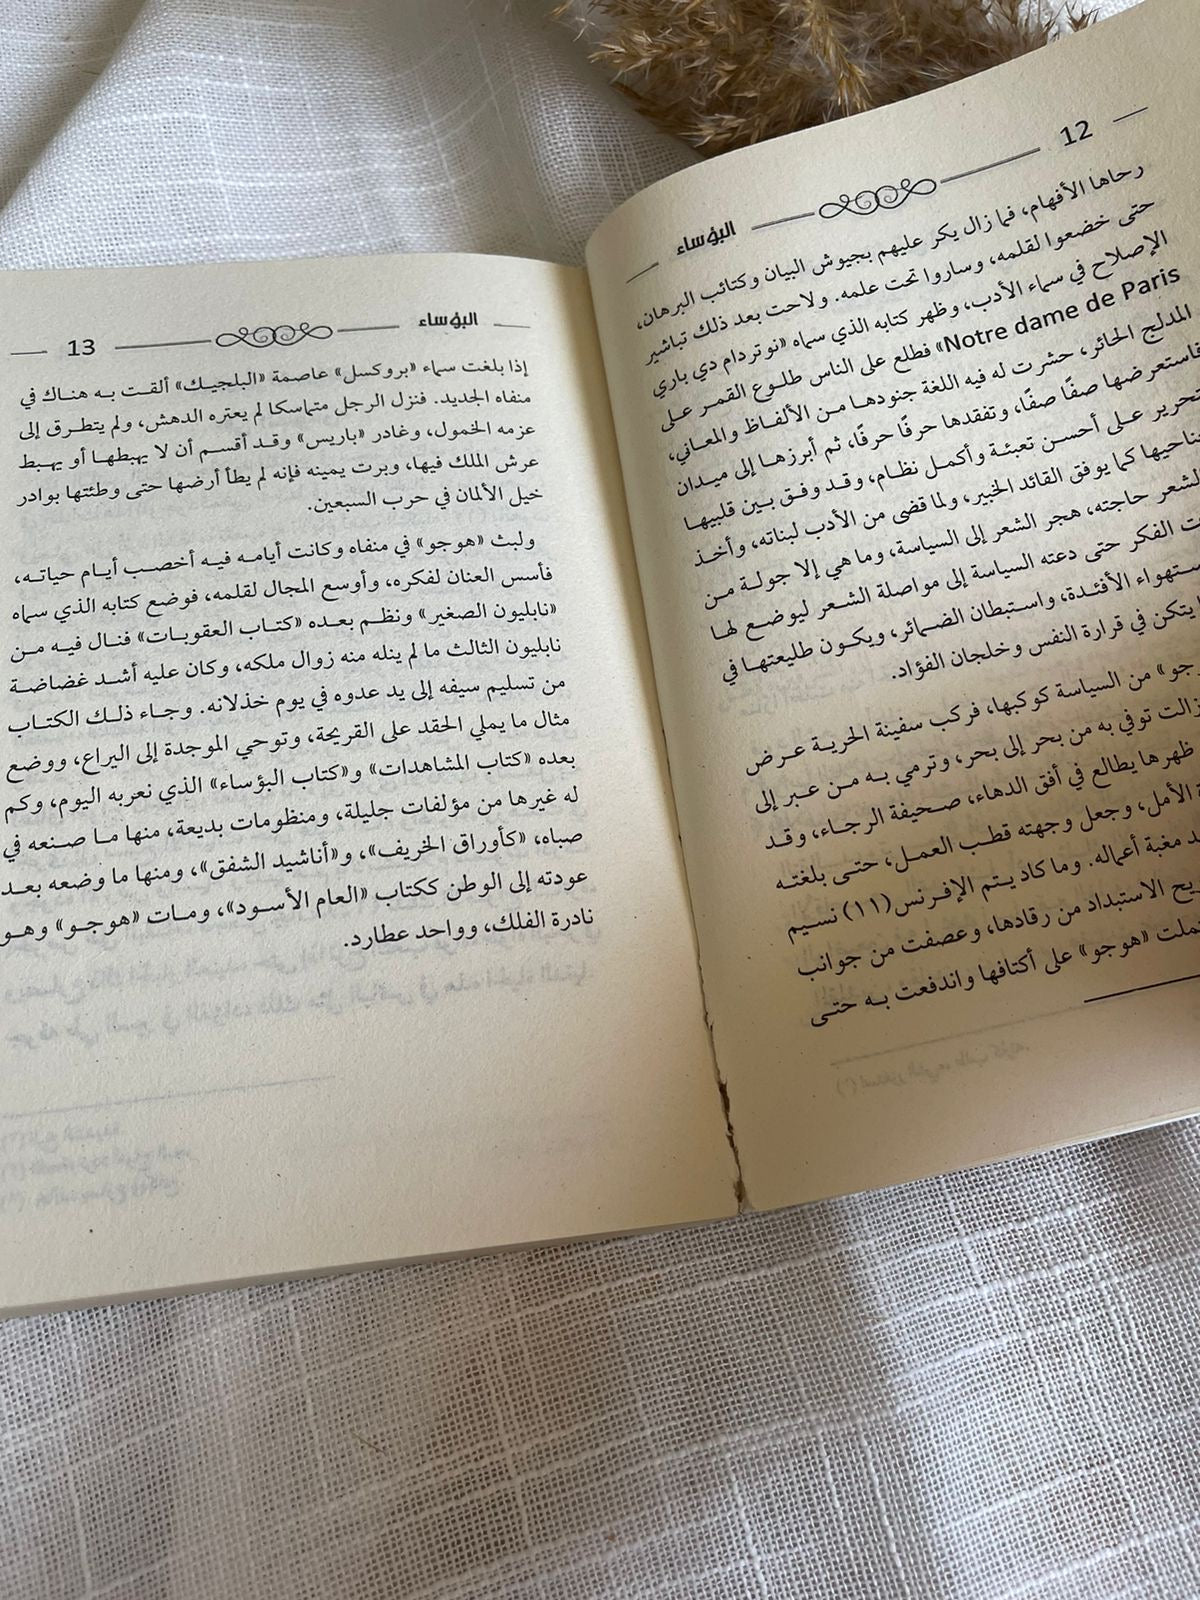 12
البؤساء
رحاها الأفهام، فما زال يكر عليهم بجيوش البيان وكتائب البرهان،
حتى خضعوا لقلمه، وساروا تحت علمه. ولاحت بعد ذلك تباشير
الإصلاح في سماء الأدب، وظهر كتابه الذي سماه «نوتردام دي باري
Notre dame de Paris» فطلع على الناس طلوع القمر على
المدلج الحائر، حشرت له فيه اللغة جنودها من الألفاظ والمعاني،
فاستعرضها صفًا صفًا، وتفقدها حرفًا حرفًا، ثم أبرزها إلى ميدان
على أحسن تعبئة وأكمل نظام، وقد وفق بين قلبيها
كما يوفق القائد الخبير، ولما قضى من الأدب لبناته، وأخذ
حاجته، هجر الشعر إلى السياسة، وما هي إلا جولة من
الفكر حتى دعته السياسة إلى مواصلة الشعر ليوضع لها
الأفئدة، واستبطان الضمائر، ويكون طليعتها في
يتكن في قرارة النفس وخلجان الفؤاد.
من السياسة كوكبها، فركب سفينة الحرية عرض
توفي به من بحر إلى بحر، وترمي به من عبر إلى
ظهرها يطالع في أفق الدهاء، صحيفة الرجاء، وقد
الأمل، وجعل وجهته قطب العمل، حتى بلغته
مغبة أعماله. وما كاد يتم الإفرنس(١١) نسيم
الاستبداد من رقادها، وعصفت من جوانب
«هوجو» على أكتافها واندفعت به حتى
البؤساء
13
إذا بلغت سماء «بروكسل» عاصمة «البلجيك» ألقت به هناك في
منفاه الجديد. فنزل الرجل متماسكا لم يعتره الدهش، ولم يتطرق إلى
عزمه الخمول، وغادر «باريس» وقد أقسم أن لا يهبطها أو يهبط
عرش الملك فيها، وبرت يمينه فإنه لم يطأ أرضها حتى وطئتها بوادر
خيل الألمان في حرب السبعين.
ولبث «هوجو» في منفاه وكانت أيامه فيه أخصب أيام حياته،
فأسس العنان لفكره، وأوسع المجال لقلمه، فوضع كتابه الذي سماه
«نابليون الصغير» ونظم بعده «كتاب العقوبات» فنال فيه من
نابليون الثالث ما لم ينله منه زوال ملكه، وكان عليه أشد غضاضة
من تسليم سيفه إلى يد عدوه في يوم خذلانه. وجاء ذلك الكتاب
مثال ما يملي الحقد على القريحة، وتوحي الموجدة إلى اليراع، ووضع
بعده «كتاب المشاهدات» و«كتاب البؤساء» الذي نعربه اليوم، وكم
له غيرها من مؤلفات جليلة، ومنظومات بديعة، منها ما صنعه في
صباه، «كأوراق الخريف»، و«أناشيد الشفق»، ومنها ما وضعه بعد
عودته إلى الوطن ككتاب «العام الأسود»، ومات «هوجو» وهو
نادرة الفلك، وواحد عطارد.